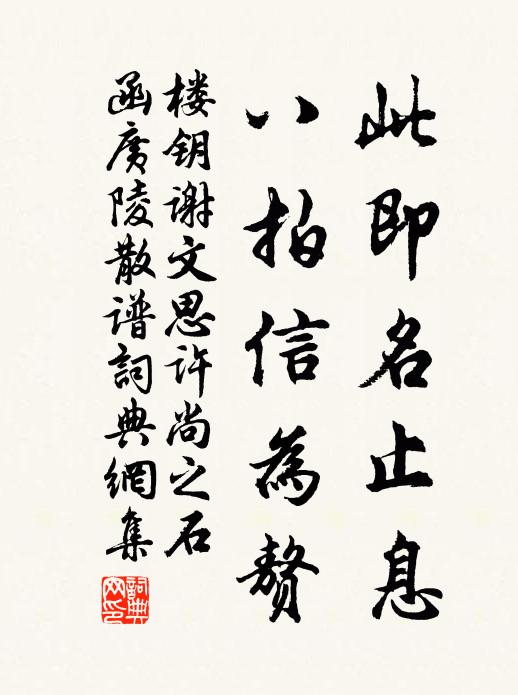 此即名止息
八拍信為贅
楼钥谢文思许尚之石
函廣陵散谱詞典網集
詞典网印